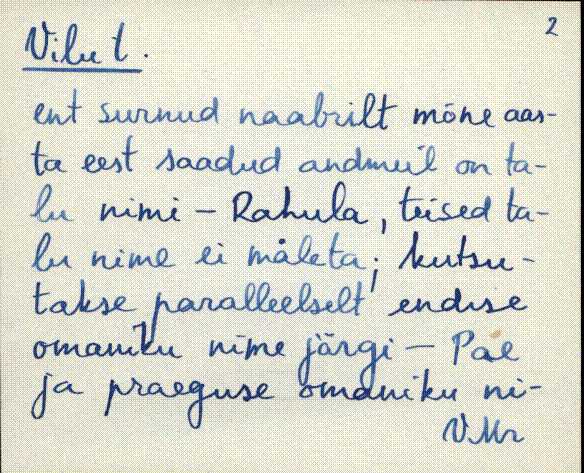 2
Vilu t.
ent surnud naabrilt mõne aas-
ta eest saadud andmeil on ta-
lu nimi – Rahula, teised ta-
lu nime ei mäleta; kutsu-
takse paralleelselt endise
omaniku nime järgi – Pae
ja praeguse omaniku ni-
VMr